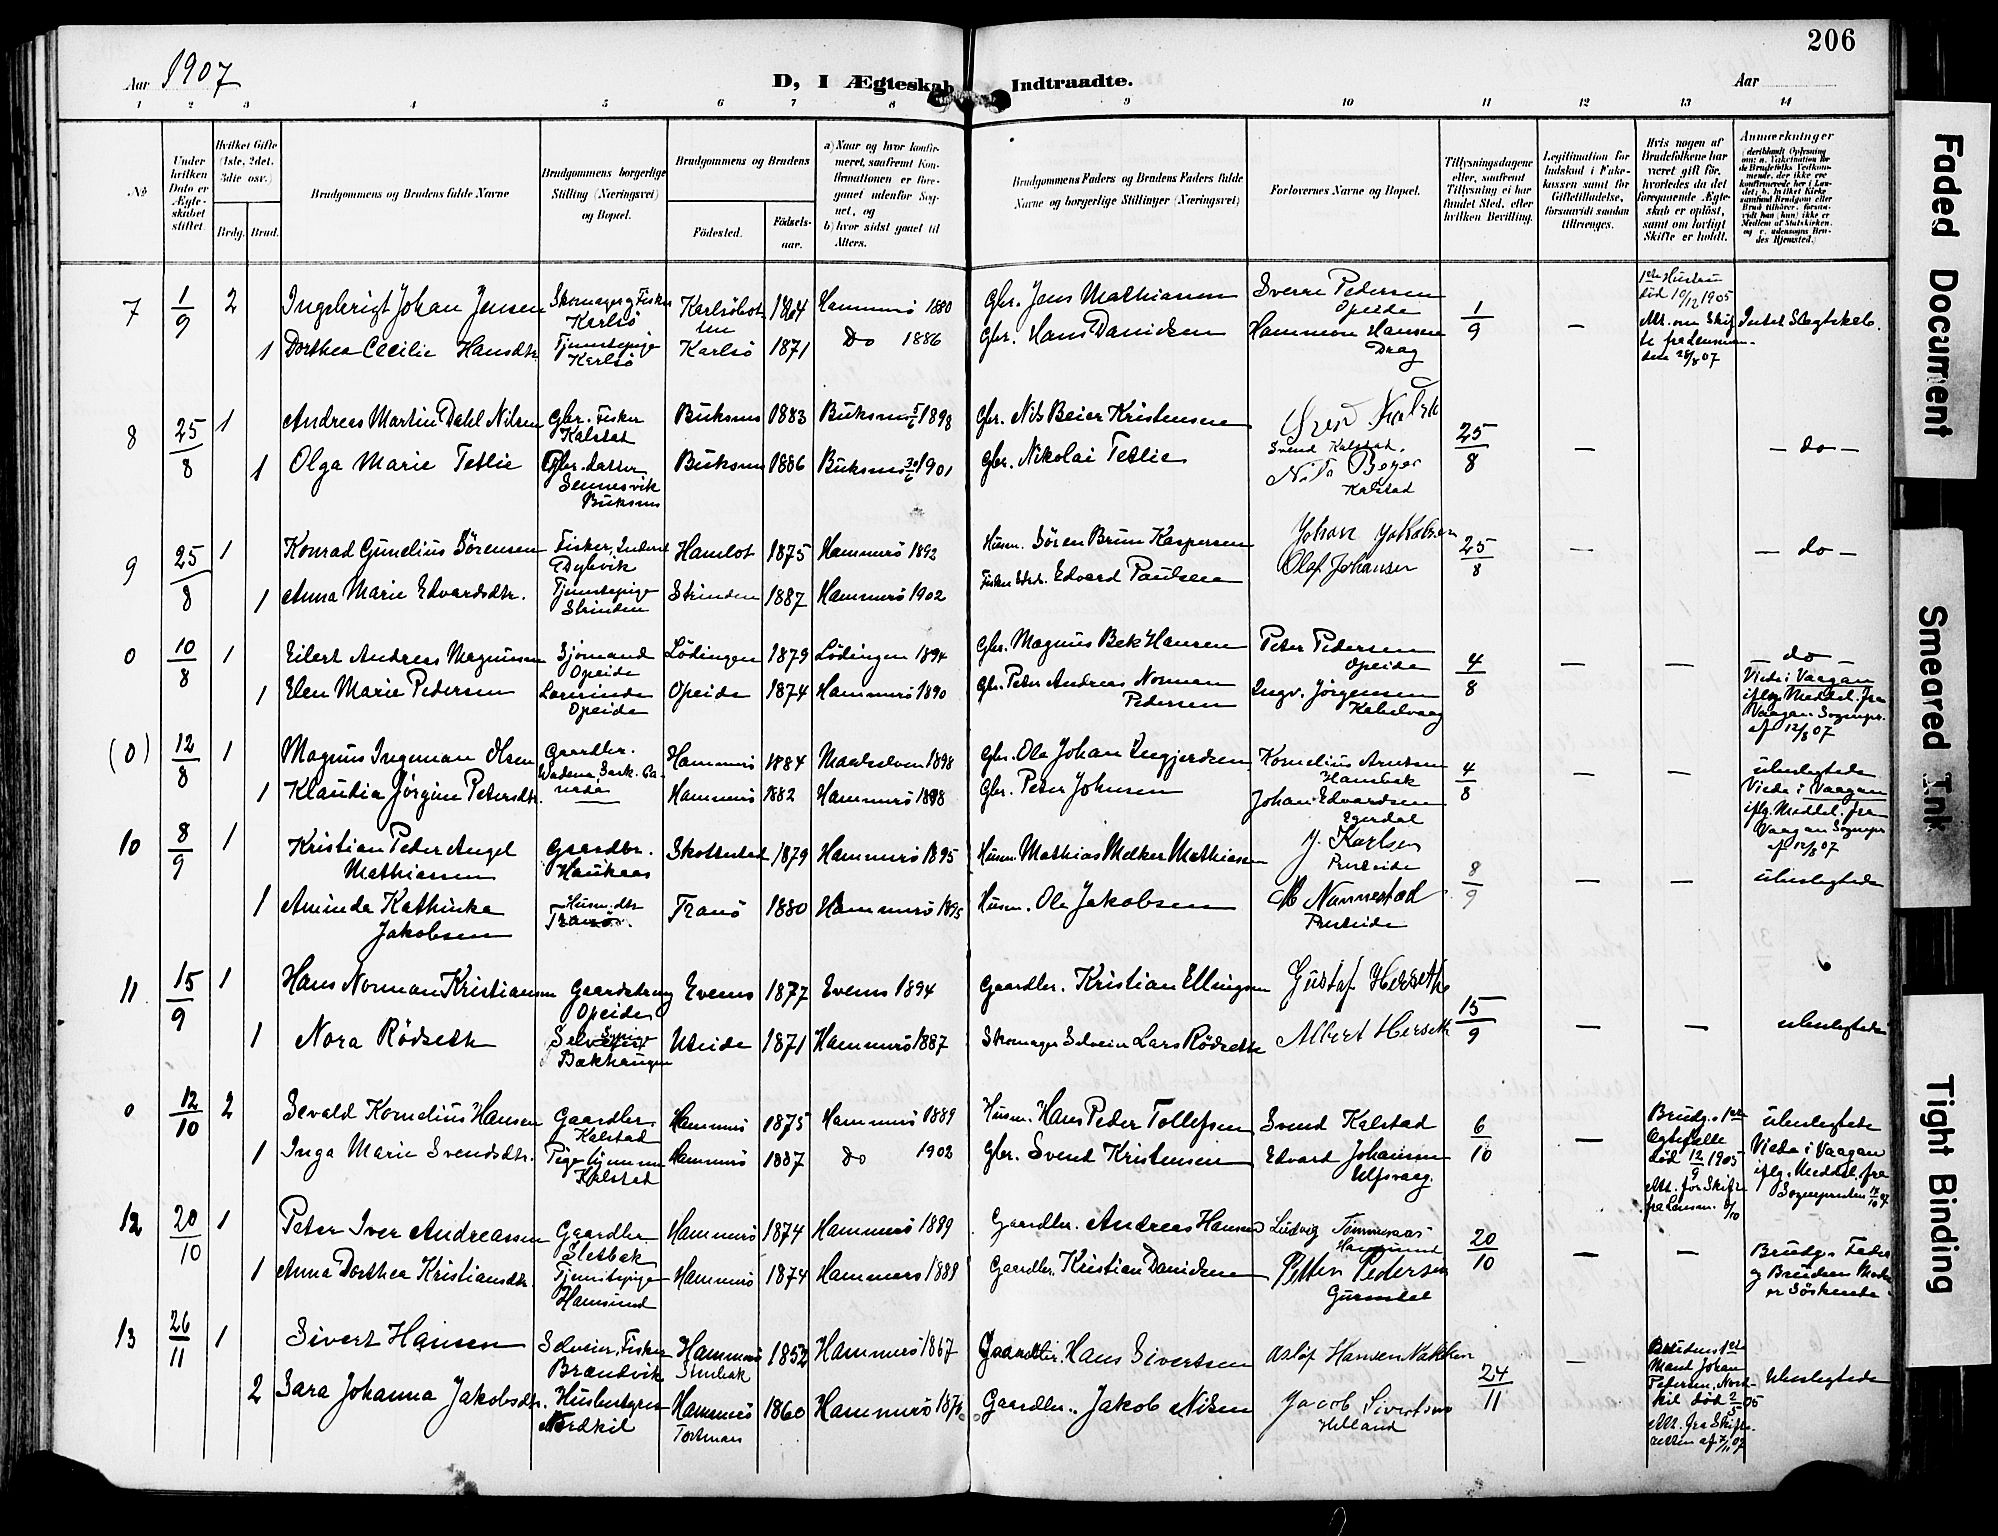 206
Aar 1907
D, I Ægteskab Indtraadte.
Aar
1 2 3 4 5 6 7 8 9 10 11 12 13 14
No
Under hvilken Dato er Ægteskabet stiftet.
Hvilket Gifte (1ste, 2det, 3die osv.)
Brdg. Brud.
Brudgommens og Brudens fulde Navne
Brudgommens borgerlige Stilling (Næringsvei) og Bopæl.
Brudgommens og Brudens
Fødested.
Fødselsaar.
a) Naar og hvor konfirmeret, saafremt Konfirmationen er foregaaet udenfor Sognet, og
b) hvor sidst gaaet til Alters.
Brudgommens Faders og Brudens Faders fulde Navne og borgerlige Stillinger (Næringsvei)
Forlovernes Navne og Bopæl.
Tillysningsdagene eller, saafremt Tillysning ei har fundet Sted, efter hvilken Bevilling.
Legitimation for Indskud i Enkekassen samt for Giftetilladelse, forsaavidt saadan tiltrænges.
Hvis nogen af Brudefolkene har været gift før, hvorledes da det foregaaende Ægteskab er opløst, samt om lovligt Skifte er holdt.
Anmærkninger
7 1/9 2 Ingebrigt Johan Jensen Skomager og Fisker Karlsö 1864 Hammerö 1880 Gbr. Jens Mathiassen Sverre Pedersen Opeide 1/9
1ste Hustru død 10/12 1905
1 Dorthea Cecilie Hansdtr. Tjenestepige Karlsö Karlsö 1871 Do 1886 Gbr. Hans Danielsen Hammeon Hansen Drag — Intet Slegtskab.
8 25/8 1 Andreas Martin Dahl Nilsen Gbr. Fisker Kalstad Buksnes 1883 Buksnes 1898 Gbr. Nils Beier Kristensen Svend Kalstad 25/8 — — do —
1 Olga Marie Tetlie Gbr. datter Sennesvik Buksnes Buksnes 1886 Buksnes 1901 Gbr. Nikolai Tetlie Nils Beyer Kalstad
9 25/8 1 Konrad Gunelius Sörensen Fisker, Inderst Dybvik Hamlot 1875 Hammerö 1892 Husm. Sören Brun Kaspersen Johan Jakobsen 25/8 — — do —
1 Anna Marie Edvardsdtr. Tjenestepige Strinden Strinden 1887 Hammerö 1902 Edvard Paulsen Olaf Johansen
0 10/8 1 Eilert Andreas Magnussen Sjömand Opeide Lödingen 1879 Lödingen 1894 Gbr. Magnus Bek Hansen Peter Pedersen Opeide 4/8 — — — do —
1 Elen Marie Pedersen Lærerinde Opeide Opeide 1874 Hammerö 1890 Gbr. Peter Andreas Norman Pedersen Ingv. Jörgensen Kabelvaag
Viede i Vaagan iflg. Meddel. fra Vaagan Sognepr. af 12/8 07
(0) 12/8 1 Magnus Ingeman Olsen Gaardbr. Hammerö 1884 Maalselven 1898 Gbr. Ole Johan Ingjerdsen Kornelius Arntsen Hambek 4/8 — — ubeslegtede
1 Klaudia Jörgine Petersdtr. Hammerö 1882 Hammerö 1898 Gbr. Peter Johnsen Johan Edvardsen Egerdal
Viede i Vaagan iflg. Meddel. fra Vaagan Sognepr af 12/8 07
10 8/9 1 Kristian Peder Angel Mathiassen Gaardbr. Haukaas Skottestad 1879 Hammerö 1895 Husm. Mathias Melker Mathiassen J. Karlsen Presteide 8/9 — — ubeslegtede
1 Aminda Kathinka Jakobsen Husm. dtr Tranö. Tranö 1880 Hammerö 1895 Husm. Ole Jakobsen M Nannestad Presteide
11 15/9 1 Hans Norman Kristiansen Gaardsdreng Opeide Evenes 1877 Evenes 1894 Gaardbr. Kristian Ellingsen Gustaf Herseth 15/9 — — ubeslegtede
1 Nora Rödseth Bakhaugen Uteide 1871 Hammerö 1887 Skomager Selveier Lars Rödseth Albert Herseth
0 12/10 2 Sevald Kornelius Hansen Gaardbr. Kalstad Hammerö 1875 Hammerö 1889 Husm. Hans Peder Tollefsen Svend Kalstad 6/10 —
Brudg. 1ste Ægtefælle død 12/9 1905 Att. for Skifte fra Lensm.
ubeslegtede Viede i Vaagan iflg. Meddel. fra Sognepresten
1 Inga Marie Svendsdtr. Pige hjemme Kalstad Hammerö 1887 Do 1902 Gbr. Svend Kristensen Edvard Johansen Ulfsvaag.
12 20/10 1 Peter Iver Andreassen Gaardbr Sletbak Hammerö 1874 Hammerö 1889 Gaardbr. Andreas Hansen Ludvig Tömmeraas Hamsund 20/10 — —
Brudg. Fader og Brudens Moder er Söskende
1 Anna Dorthea Kristiansdtr. Tjenestepige Hamsund Hammerö 1874 Hammerö 1888 Gaardbr. Kristian Danielsen Petter Pedersen
13 26/11 1 Sivert Hansen Selveier, Fisker Brændvik Hammerö 1852 Hammerö 1867 Gaardbr. Hans Sivertsen Asløf Hansen 24/11 — ubeslegtede
Brudens 1ste Mand Johan Petersen, Nordkil död 2/5 05 Att. fra Skifteretten af 7/11 07
2 Sara Johanna Jakobsdtr. Husbestyrer Nordkil Hammerö 1860 Hammerö Gaardbr. Jakob Nilsen Jacob Sivertsen Helland
Faded Document
Smeared Ink
Tight Binding